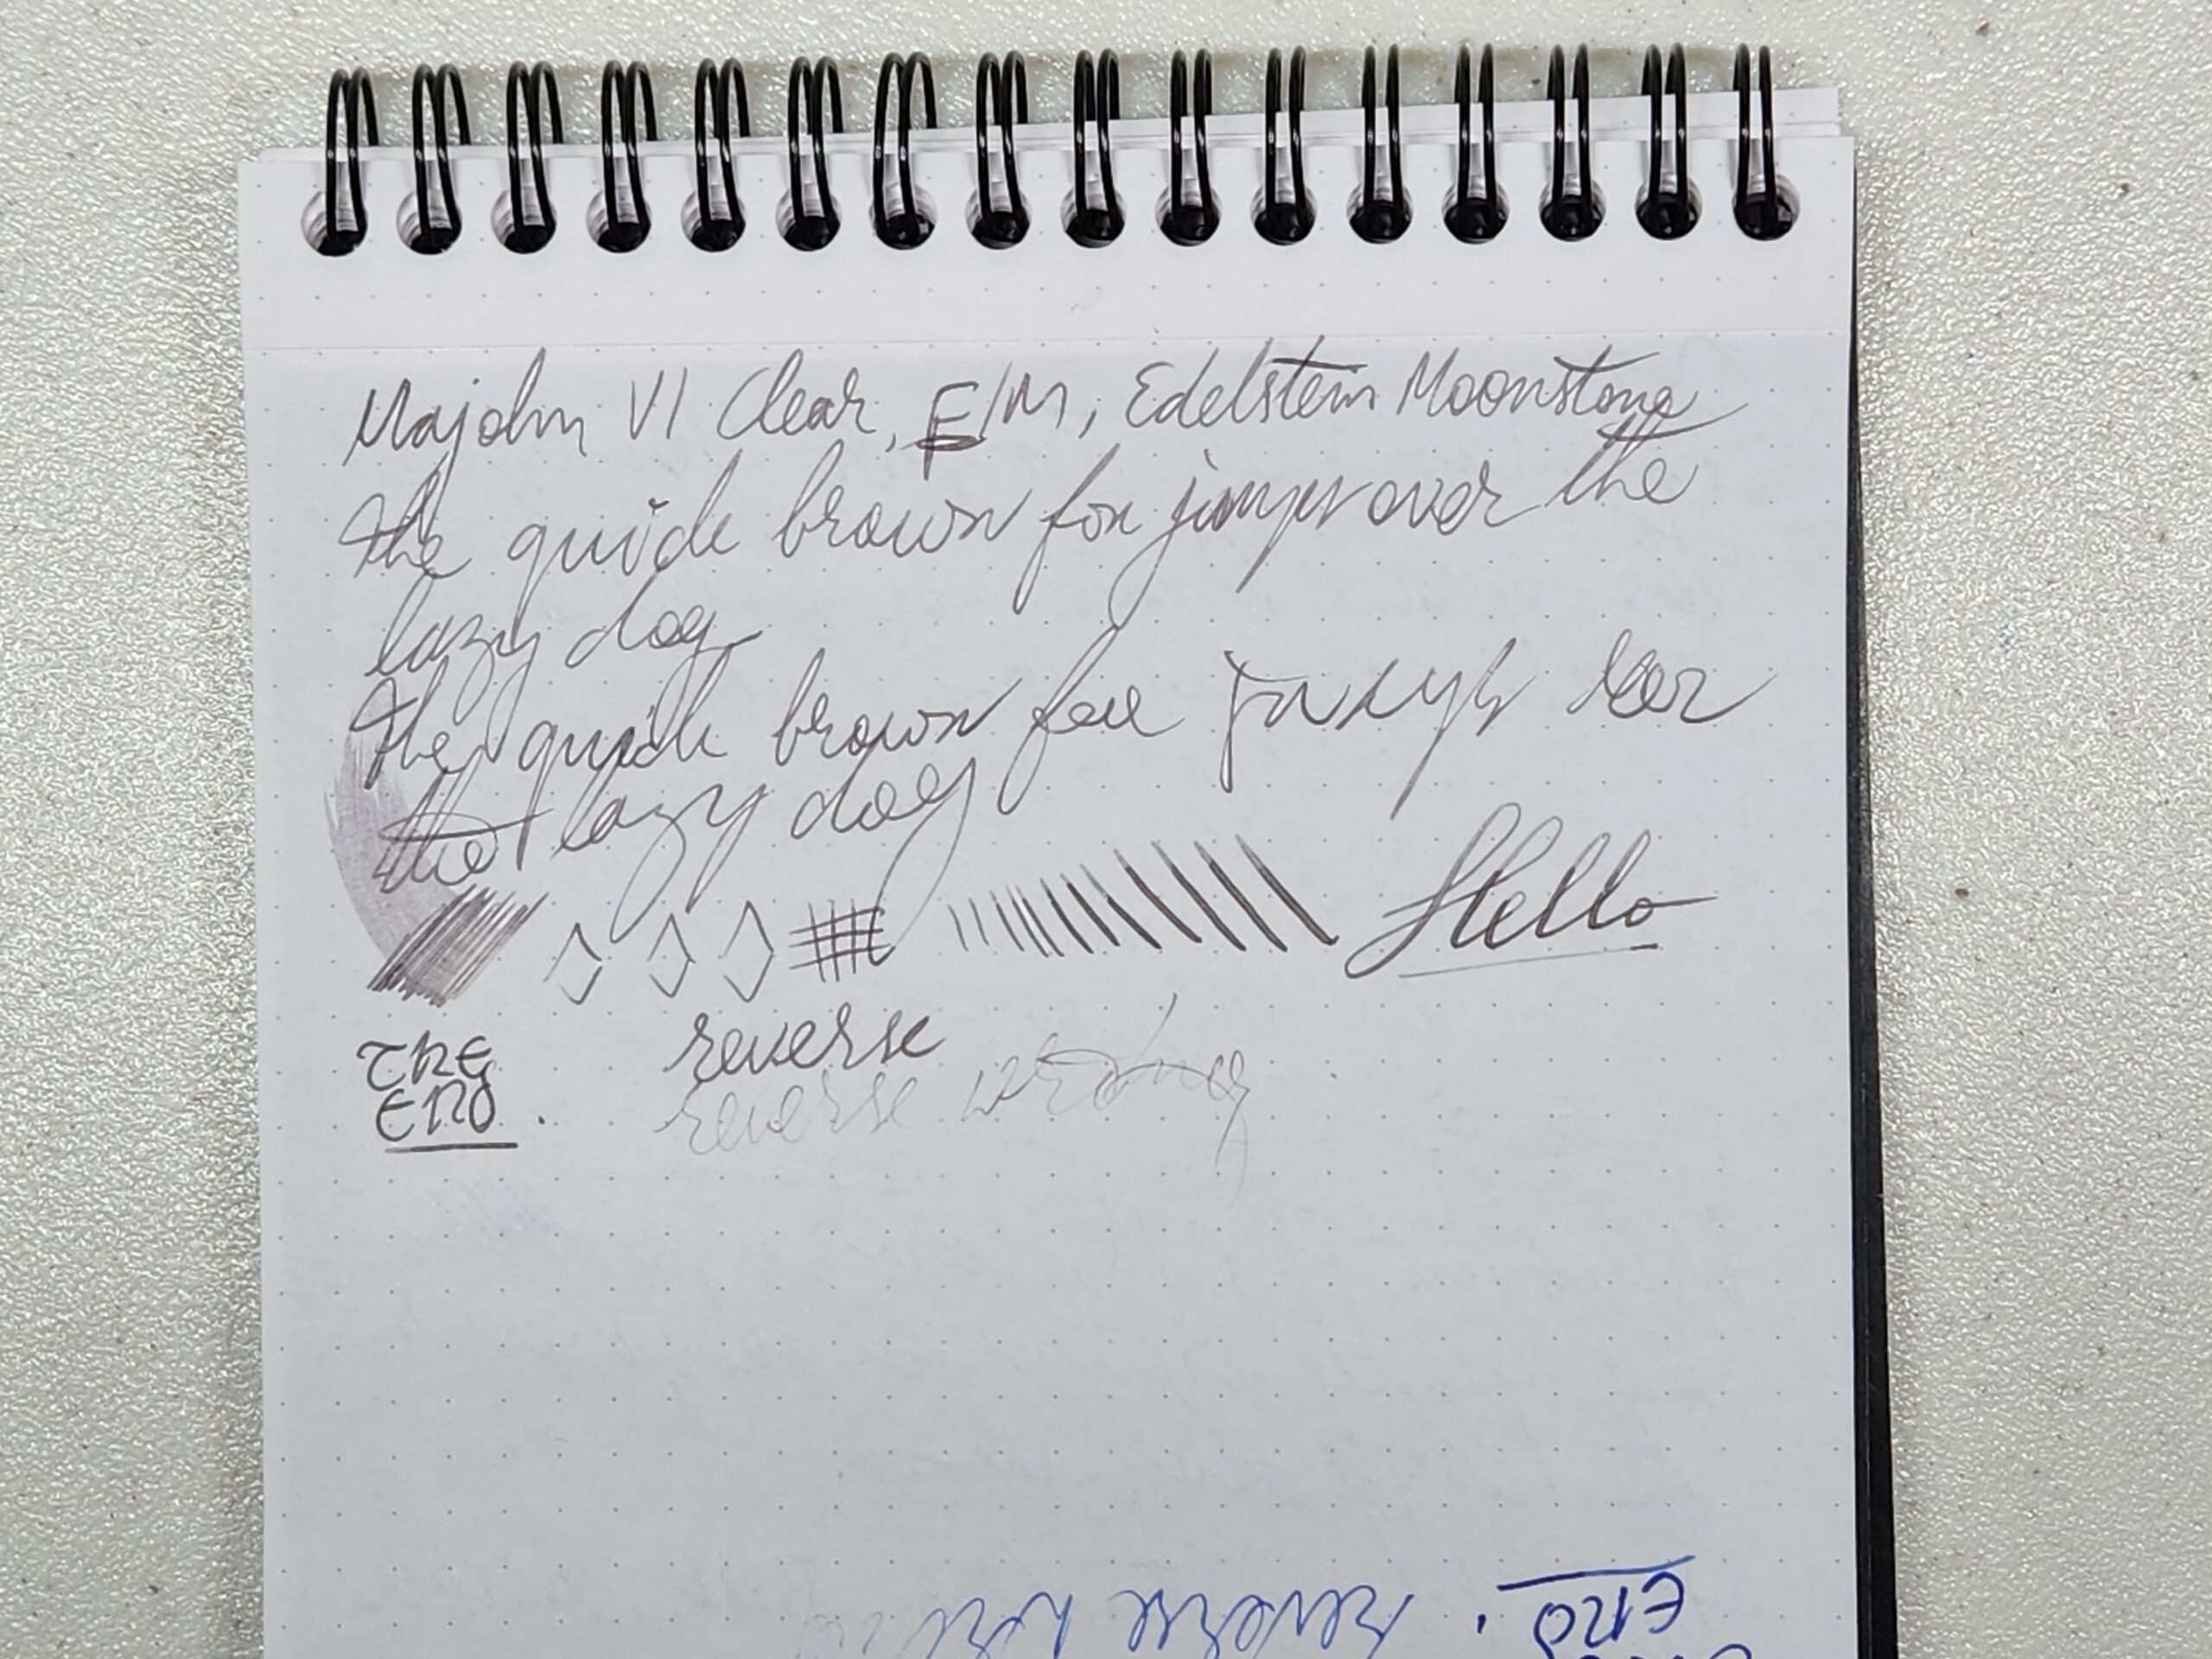 Majohn V1 Clear, F/M, Edelstein Moonstone
the quick brown fox jumps over the
lazy dog
the quick brown fox jumps over
the lazy dog
Hello
reverse
THE
END.
reverse writing
END.
reverse